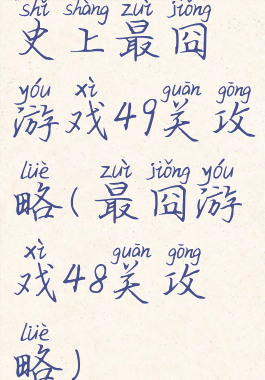 shǐ shàng zuì jiǒng
史上最囧
yóu xì guān gōng
游戏49关攻
lüè zuì jiǒng yóu
略(最囧游
xì guān gōng
戏48关攻
lüè
略)